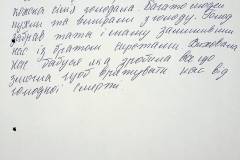 кожна сім'я голодала. Багато людей
пухли та вмирали з голоду. Голод
забрав тата і маму залишивши
нас із братом сиротами. Виховала
нас бабуся яка зробила все що
змогла щоб врятувати нас від
голодної смерті